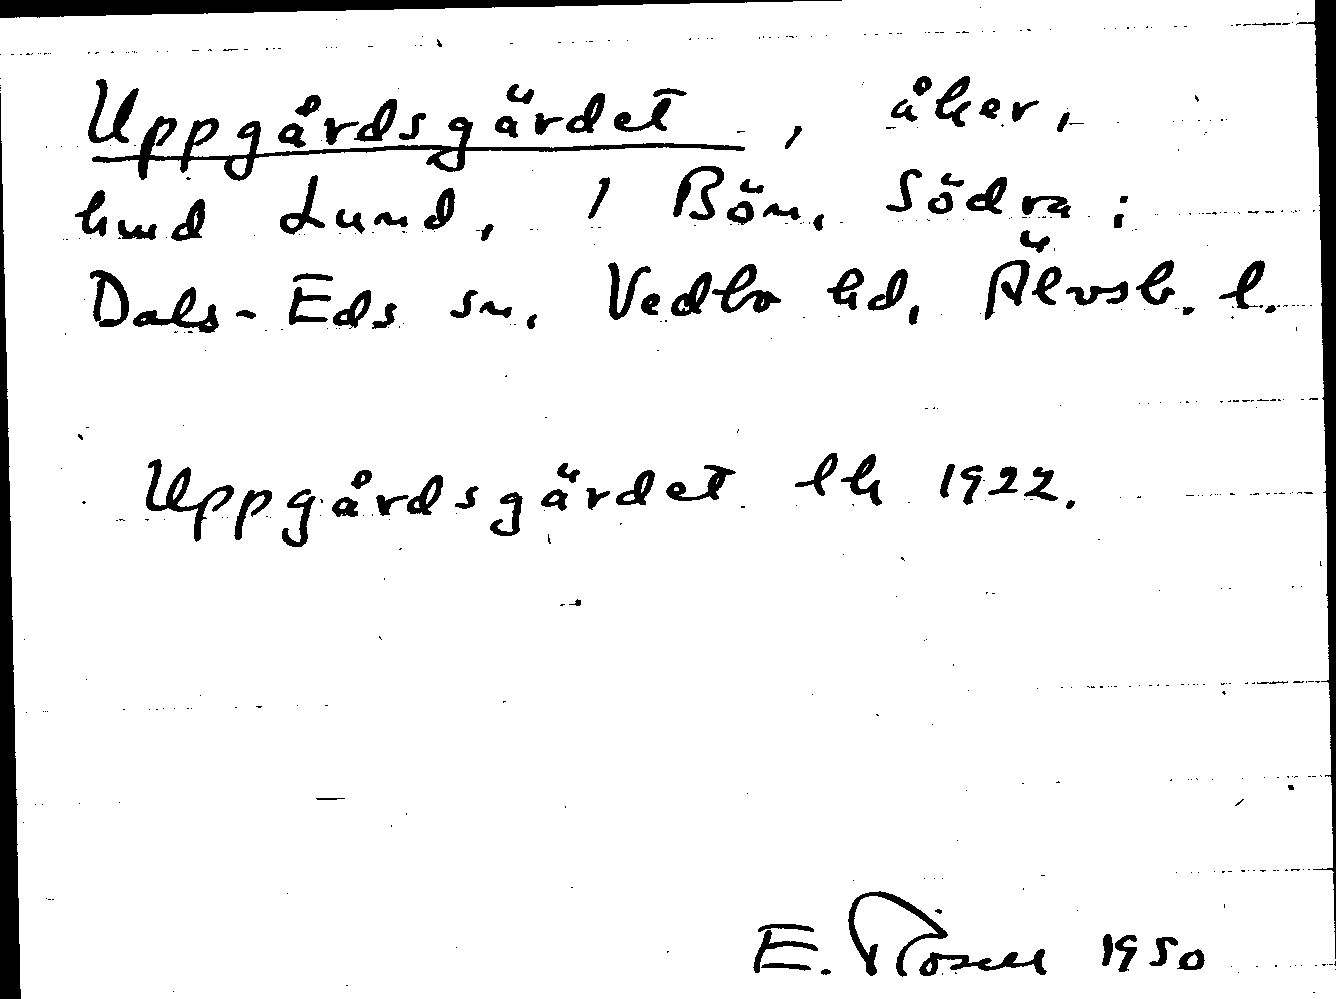 Uppgårdsgärdet, åker,
hmd Lund, 1 Bön, Södra;
Dals-Eds sn, Vedbo hd, Älvsb. l.
Uppgårdsgärdet lk 1922.
E. Rosell 1950